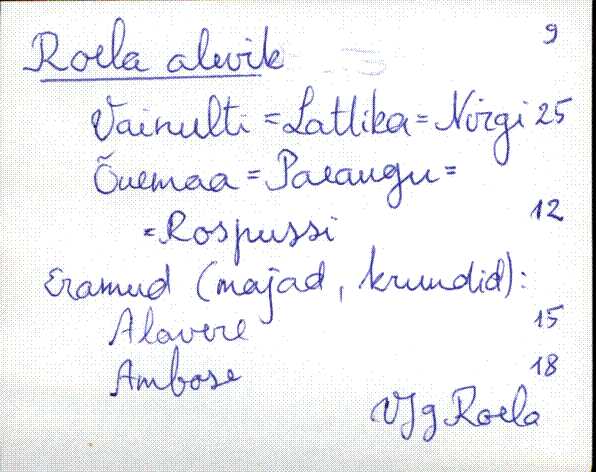 Roela alevik 9
Vainulti = Latlika = Nirgi 25
Õuemaa = Paeaugu =
= Rospussi 12
Eramud (majad, krundid):
Alavere 15
Ambose 18
VJg Roela